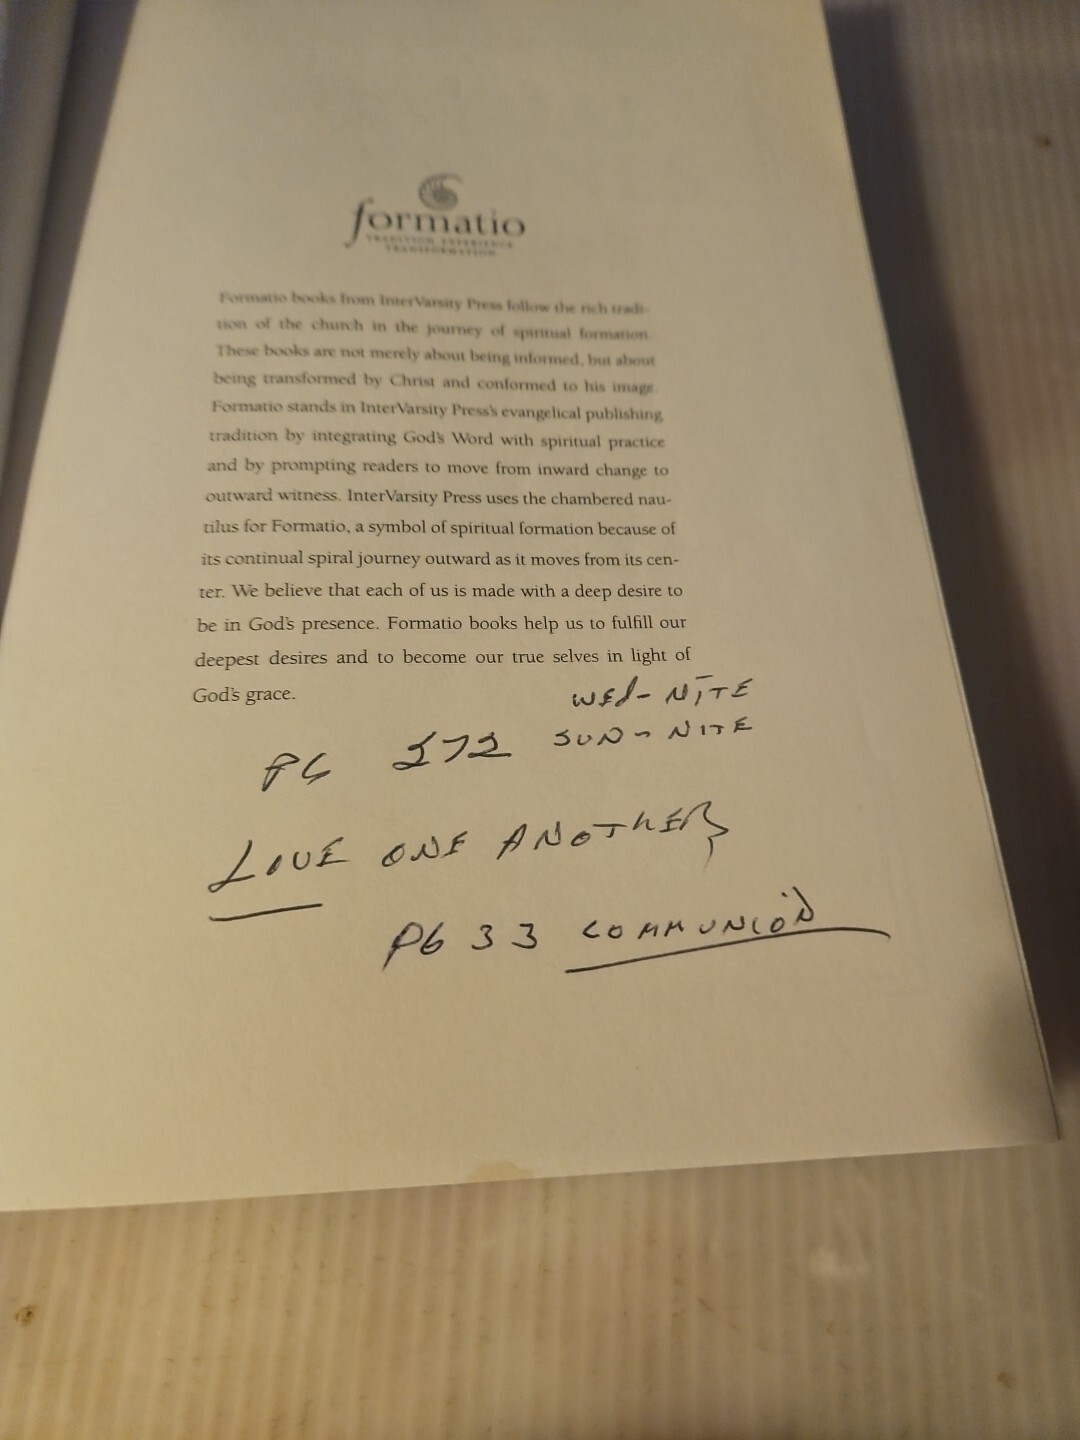 formatio
TRADITION EXPERIENCE
TRANSFORMATION
Formatio books from InterVarsity Press follow the rich tradi-
tion of the church in the journey of spiritual formation.
These books are not merely about being informed, but about
being transformed by Christ and conformed to his image.
Formatio stands in InterVarsity Press's evangelical publishing
tradition by integrating God's Word with spiritual practice
and by prompting readers to move from inward change to
outward witness. InterVarsity Press uses the chambered nau-
tilus for Formatio, a symbol of spiritual formation because of
its continual spiral journey outward as it moves from its cen-
ter. We believe that each of us is made with a deep desire to
be in God's presence. Formatio books help us to fulfill our
deepest desires and to become our true selves in light of
God's grace.
WED- NITE
SUN- NITE
PG 272
LOVE ONE ANOTHER
PG 33 COMMUNION